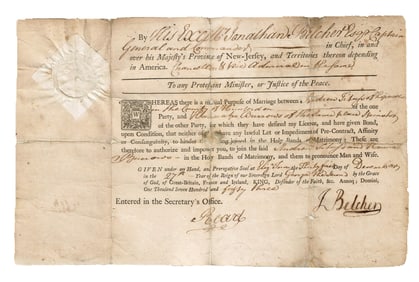 By His Excy Jonathan Belcher Esqr Captain
General and Commander in Chief, in and
over his Majesty's Province of New-Jersey, and Territories thereon depending
in America. Chancellor & Vice Admiral in the same
To any Protestant Minister, or Justice of the Peace.
WHEREAS there is a mutual Purpose of Marriage between
of the County of of the one
Party, and of the same place
of the other Party, for which they have desired my License, and have given Bond,
upon Condition, that neither of them have any lawful Let or Impediment of Pre-Contract, Affinity
or Consanguinity, to hinder their being joined in the Holy Bands of Matrimony: These are
therefore to authorize and impower you, to join the said
in the Holy Bands of Matrimony, and them to pronounce Man and Wife.
GIVEN under my Hand, and Prerogative Seal at Day of December
in the 27th Year of the Reign of our Sovereign Lord George the Second by the Grace
of God, of Great-Britain, France and Ireland, KING, Defender of the Faith, &c. Annoq; Domini,
One Thousand Seven Hundred and fifty three
Entered in the Secretary's Office.
J Belcher
Read